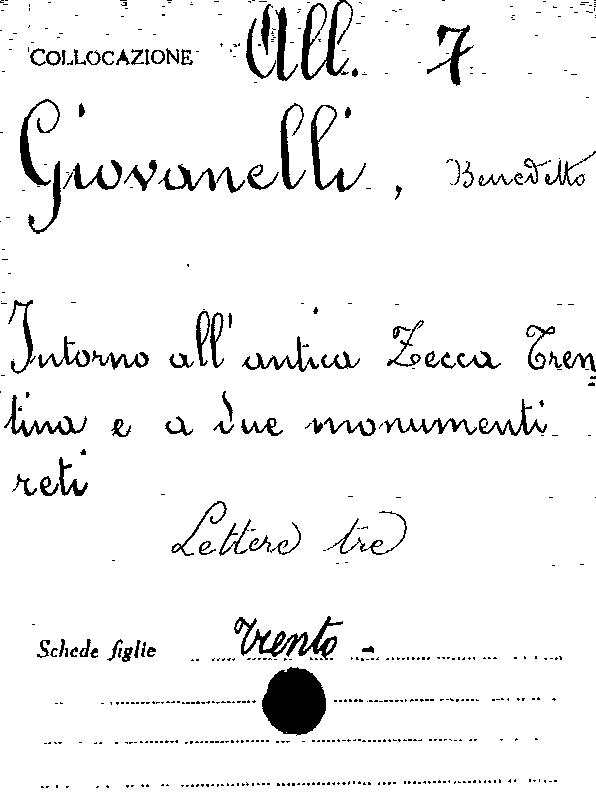 COLLOCAZIONE All. 7
Giovanelli, Benedetto
Intorno all'antica Zecca Tren
tina e a due monumenti
reti
Lettere tre
Schede figlie Trento -